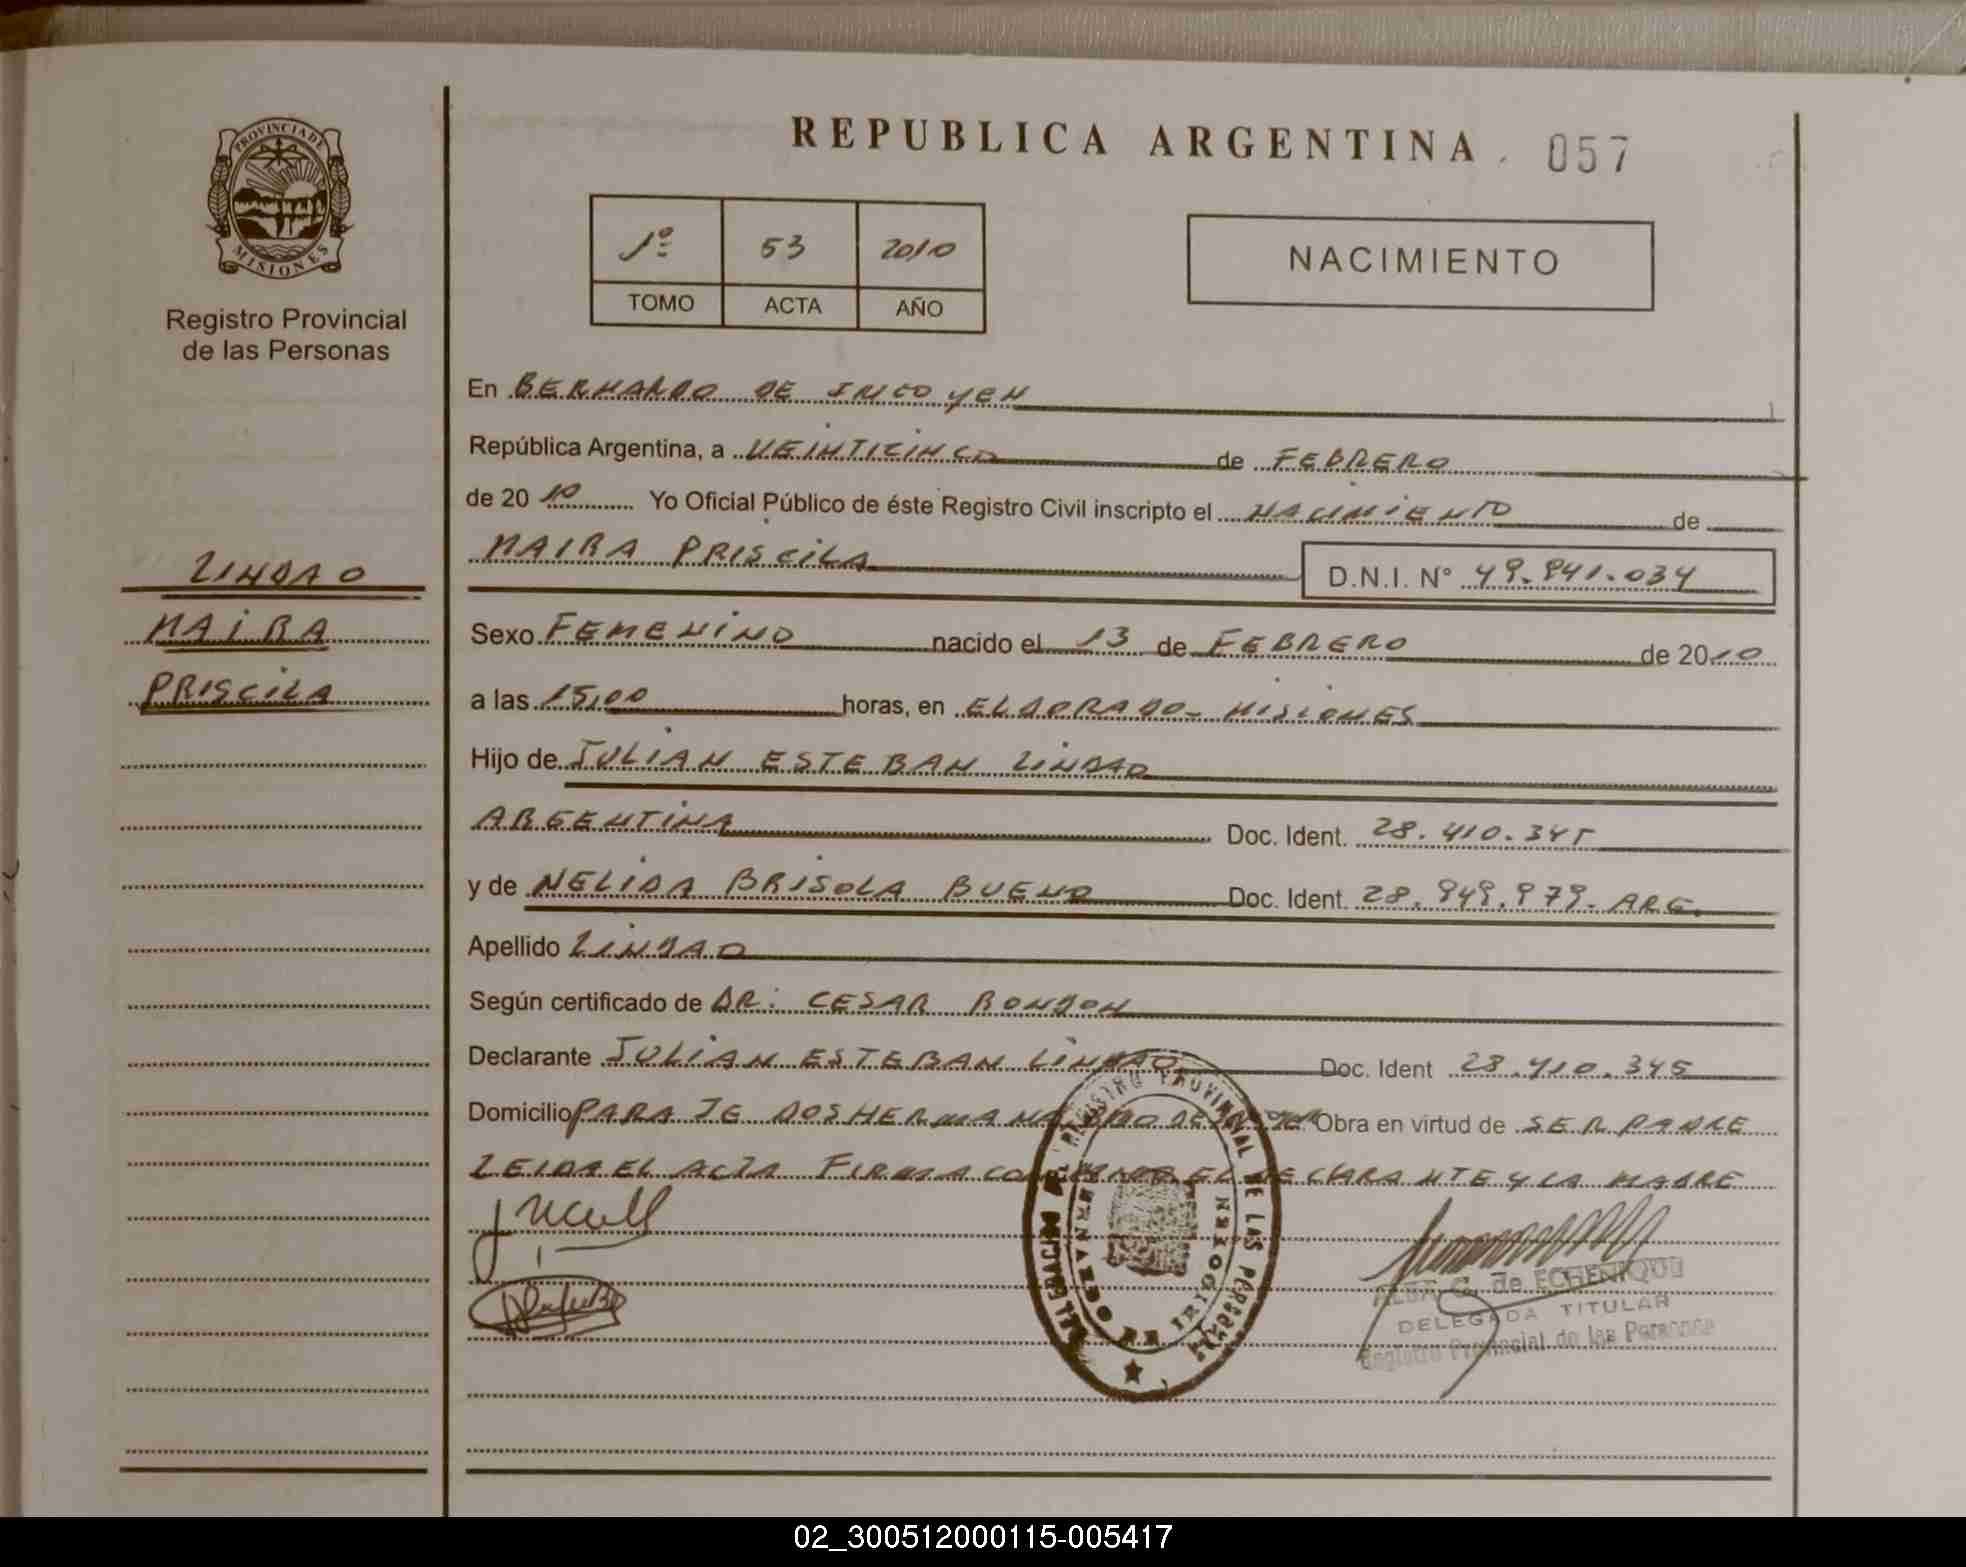 REPUBLICA ARGENTINA 057
PROVINCIA DE
MISIONES
Registro Provincial
de las Personas
1º 53 2010
TOMO ACTA AÑO
NACIMIENTO
En BERNARDO DE IRIGOYEN
República Argentina, a VEINTICINCO de FEBRERO
de 20 10 Yo Oficial Público de éste Registro Civil inscripto el NACIMIENTO de
MAIRA PRISCILA D.N.I. Nº 49.841.034
LINDAO
MAIRA
PRISCILA
Sexo FEMENINO nacido el 13 de FEBRERO de 2010
a las 15,00 horas, en ELDORADO - MISIONES
Hijo de JULIAN ESTEBAN LINDAO
ARGENTINA Doc. Ident. 28.410.345
y de NELIDA BRISOLA BUENO Doc. Ident. 28.949.979. ARG.
Apellido LINDAO
Según certificado de DR: CESAR RONDON
Declarante JULIAN ESTEBAN LINDAO Doc. Ident 28.410.345
Domicilio PARAJE DOS HERMANAS Obra en virtud de SER PADRE
LEIDA EL ACTA FIRMA EL DECLARANTE Y LA MADRE
DELEGACION DEL REGISTRO PROVINCIAL DE LAS PERSONAS
BERNARDO DE IRIGOYEN
ALBA G. de ECHENIQUE
DELEGADA TITULAR
Registro Provincial de las Personas
02_300512000115-005417